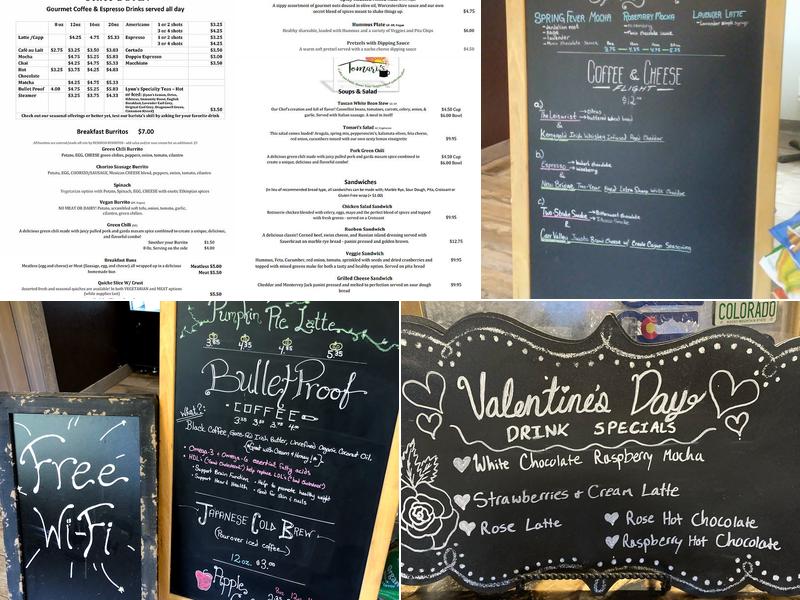 Gourmet Coffee & Espresso Drinks served all day
8 oz 12oz 16oz 20oz
Latte /Capp $4.25 4.75 $5.33
Café au Lait $2.75 $3.25 $3.50 $3.83
Mocha $4.75 $5.25 $5.83
Chai $4.25 $4.75 $5.33
Hot Chocolate $3.25 $3.75 $4.83
Matcha $4.25 $4.75 $5.33
Bullet Proof 4.08 $4.75 $5.25 $5.83
Steamer $3.25 $3.75 $4.33
Americano 1 or 2 shots $3.25
3 or 4 shots $4.25
Espresso 1 or 2 shots $3.25
3 or 4 shots $4.25
Cortado $3.50
Doppio Espresso $3.00
Macchiato $3.50
Lynn's Specialty Teas - Hot
$3.50
Check out our seasonal offerings or better yet, test our barista's skill by asking for your favorite drink
Breakfast Burritos $7.00
Green Chili Burrito
Potato, EGG, CHEESE green chilies, peppers, onion, tomato, cilantro
Chorizo Sausage Burrito
Potato, EGG, CHORIZO/SAUSAGE, Mexican CHEESE blend, peppers, onion, tomato, cilantro
Spinach
Vegetarian option with Potato, Spinach, EGG, CHEESE with exotic Ethiopian spices
Vegan Burrito
NO MEAT OR DAIRY! Potato, scrambled soft tofu, onion, tomato, garlic,
cilantro, green chilies.
Green Chili
A delicious green chili made with juicy pulled pork and garda masam spice combined to create a unique, delicious,
and flavorful combo!
Smother your Burrito $1.50
8 Oz. Serving on the side $4.00
Breakfast Buns
Meatless (egg and cheese) or Meat (Sausage, egg, and cheese) all wrapped up in a delicious
homemade bun
Meatless $5.00
Meat $5.50
Quiche Slice W/ Crust
Assorted fresh and seasonal quiches are available! In both VEGETARIAN and MEAT options
(while supplies last)
$5.50
A zippy assortment of gourmet nuts doused in olive oil, Worcestershire sauce and our own
secret blend of spices meant to shake things up.
$4.75
Hummus Plate
Healthy shareable, loaded with Hummus and a variety of Veggies and Pita Chips
$6.00
Pretzels with Dipping Sauce
A warm soft pretzel served with a nacho cheese dipping sauce
$4.50
Tomari's
Soups & Salad
Tuscan White Bean Stew
Our Chef's creation and full of flavor! Cannellini beans, tomatoes, carrots, celery, onion, &
garlic. Served with Italian sausage. A meal in itself!
$4.50 Cup
$6.00 Bowl
Tomari's Salad
This salad comes loaded! Arugula, spring mix, pepperoncini's, kalamata olives, feta cheese,
red onion, cucumbers mixed with our own zesty lemon vinaigrette
$9.95
Pork Green Chili
A delicious green chili made with juicy pulled pork and garda masam spice combined to
create a unique, delicious and flavorful combo!
$4.50 Cup
$6.00 Bowl
Sandwiches
(In lieu of recommended bread type, all sandwiches can be made with; Marble Rye, Sour Dough, Pita, Croissant or
Gluten Free wrap (+ $1.00)
Chicken Salad Sandwich
Rotisserie chicken blended with celery, eggs, mayo and the perfect blend of spices and topped
with fresh greens - served on a Croissant
$9.95
Rueben Sandwich
A delicious classic! Corned beef, swiss cheese, and Russian island dressing served with
Sauerkraut on marble rye bread - panini pressed and golden brown.
$12.75
Veggie Sandwich
Hummus, Feta, Cucumber, red onion, tomato, sprinkled with seeds and dried cranberries and
topped with mixed greens make for both a tasty and healthy option. Served on pita bread
$9.95
Grilled Cheese Sandwich
Cheddar and Monterey Jack panini pressed and melted to perfection served on sour dough
bread
$9.95
Spring Fever Mocha
Rosemary Mocha
Lavender Latte
Coffee & Cheese
Flight
$12.00
a)
The Leisurist → citrus
→ buttered wheat bread
&
Kerrygold Irish Whiskey Infused Aged Cheddar
b)
Espresso → baker's chocolate
&
New Bridge Two-Year Aged Extra Sharp White Cheddar
c)
Two Stroke Smoke → Bittersweet chocolate
→ Smoke
&
Carr Valley Jacobs Brew Cheese w/ Creole Cajun Seasoning
Free
Wi-Fi
Pumpkin Pie Latte
3.85 4.35 4.85 5.35
BulletProof
COFFEE
What?:
Black Coffee, Grass-Fed Irish Butter, Unrefined Organic Coconut Oil.
• Omega-3 + Omega-6 essential fatty acids
• HDL's ("Good Cholesterol") help replace LDL's ("bad Cholesterol")
• Support Brain Function • Help to promote healthy weight
• Support Heart Health • Good for skin & nails
Japanese Cold Brew
(Pour over iced coffee...)
12oz. $3.00
Apple
COLORADO
Valentine's Day
DRINK SPECIALS
White Chocolate Raspberry Mocha
Strawberries & Cream Latte
Rose Latte
Rose Hot Chocolate
Raspberry Hot Chocolate